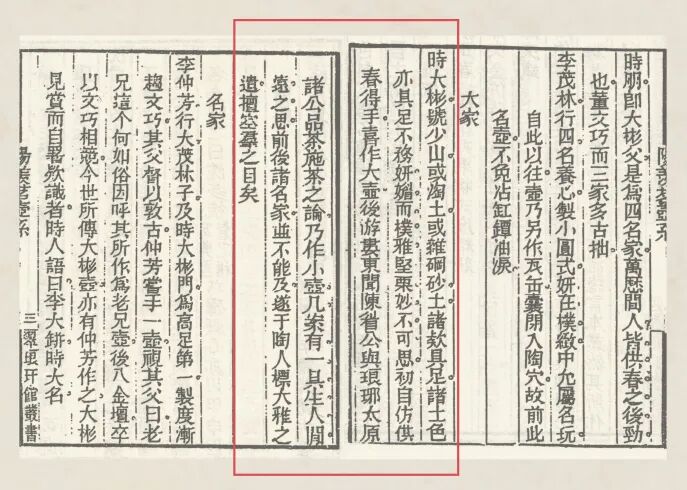 時朋即大彬父是爲四名家萬厯間人皆供春之後勁
也董文巧而三家多古拙
李茂林行四名養心製小圓式妍在樸緻中允屬名玩
自此以往壺乃另作瓦缶囊閉入陶穴故前此
名壺不免沾缸罈油淚
大家
時大彬號少山或陶土或雜碙砂土諸欵具足諸土色
亦具足不務妍媚而樸雅堅栗妙不可思初自仿供
春得手喜作大壺後游婁東聞陳眉公與琅琊太原
諸公品茶施茶之論乃作小壺几案有一具生人閒
遠之思前後諸名家並不能及遂于陶人標大雅之
遺擅空羣之目矣
名家
李仲芳行大茂林子及時大彬門爲高足第一製度漸
趨文巧其父督以敦古仲芳嘗手一壺視其父曰老
兄這個何如俗因呼其所作爲老兄壺後入金壇卒
以文巧相競今世所傳大彬壺亦有仲芳作之大彬
見賞而自署欵識者時人語曰李大缾時大名
陽羨茗壺系 三 翠琅玕館叢書